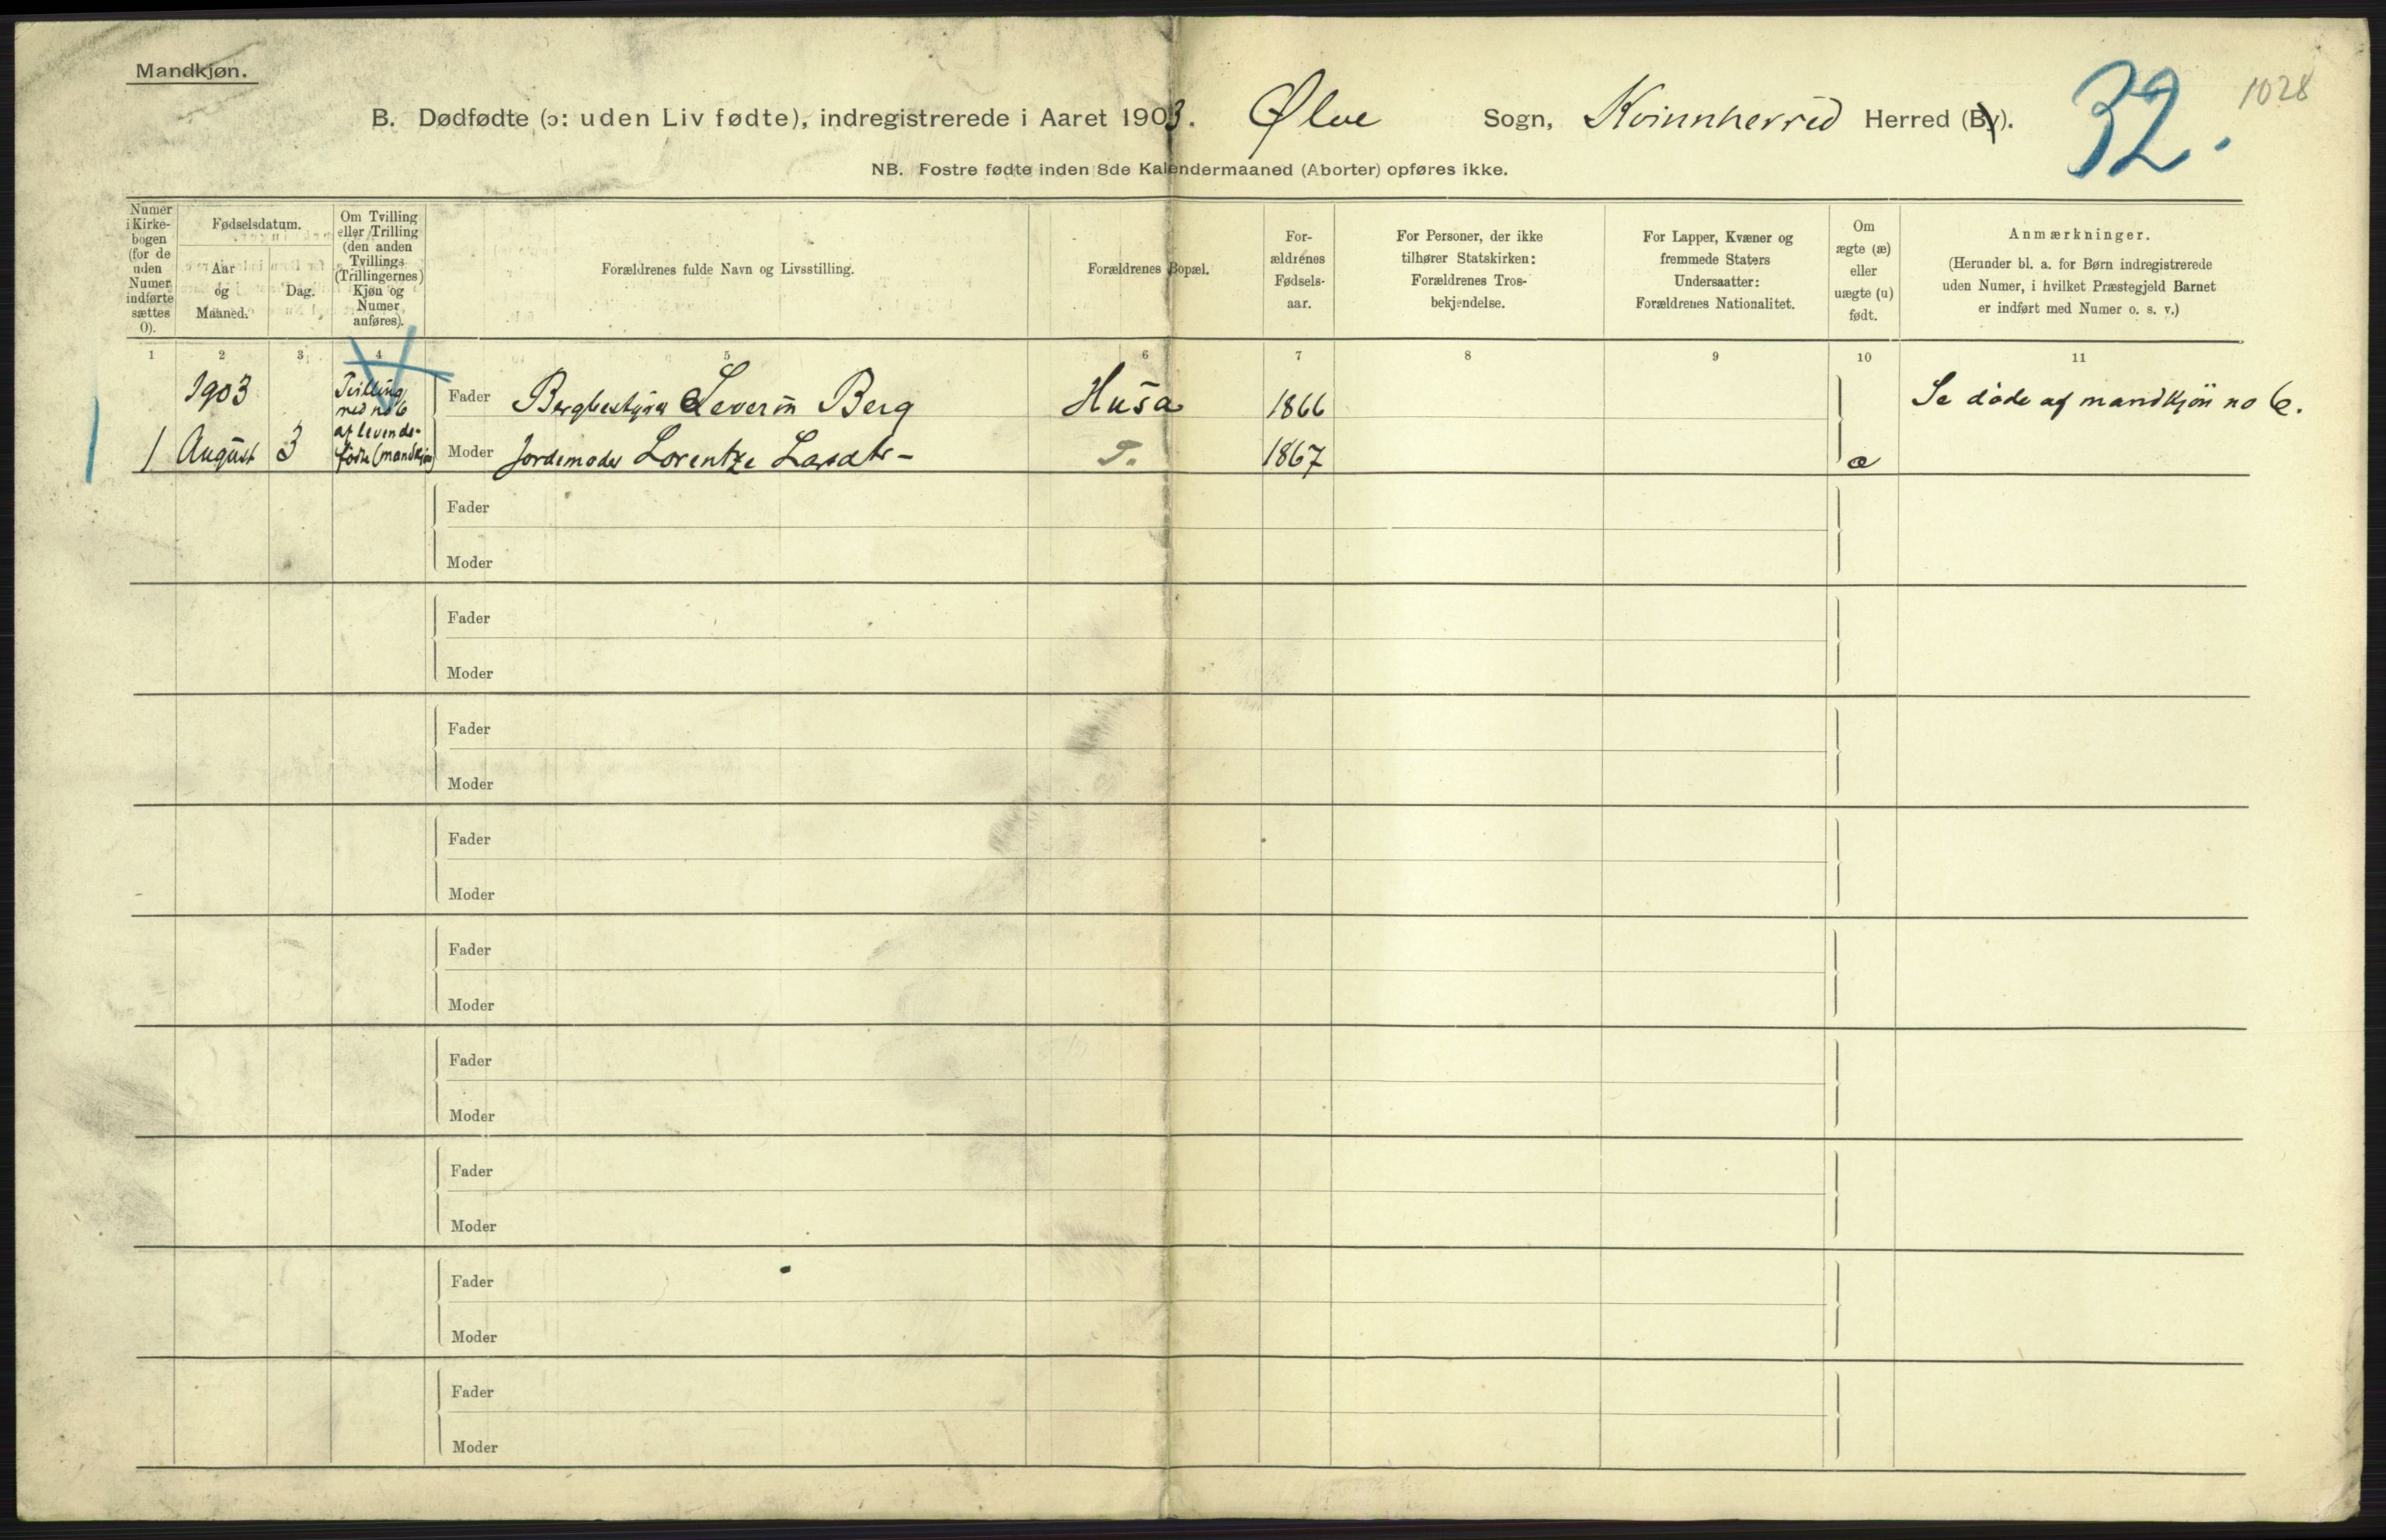 Mandkjøn.
B. Dødfødte (ɔ: uden Liv fødte), indregistrerede i Aaret 1903. Ølve Sogn, Kvinnherred Herred (By).
32.
1028
NB. Fostre fødte inden 8de Kalendermaaned (Aborter) opføres ikke.
Numer
i Kirke-
bogen
(for de
uden
Numer
indførte
sættes
0).
Fødselsdatum.
Aar
og
Maaned.
Dag.
Om Tvilling
eller Trilling
(den anden
Tvillings
(Trillingernes)
Kjøn og
Numer
anføres).
Forældrenes fulde Navn og Livsstilling.
Forældrenes Bopæl.
For-
ældrenes
Fødsels-
aar.
For Personer, der ikke
tilhører Statskirken:
Forældrenes Tros-
bekjendelse.
For Lapper, Kvæner og
fremmede Staters
Undersaatter:
Forældrenes Nationalitet.
Om
ægte (æ)
eller
uægte (u)
født.
Anmærkninger.
(Herunder bl. a. for Børn indregistrerede
uden Numer, i hvilket Præstegjeld Barnet
er indført med Numer o. s. v.)
1 2 3 4 5 6 7 8 9 10 11
1903
Tvilling
med no 6
af levende-
fødte (mandkjøn)
Fader Bergbestyrer Severin Berg Husa 1866 Se døde af mandkjøn no 6.
1 August 3 Moder Jordemoder Lorentze 1867 æ
Fader
Moder
Fader
Moder
Fader
Moder
Fader
Moder
Fader
Moder
Fader
Moder
Fader
Moder
Fader
Moder
Fader
Moder